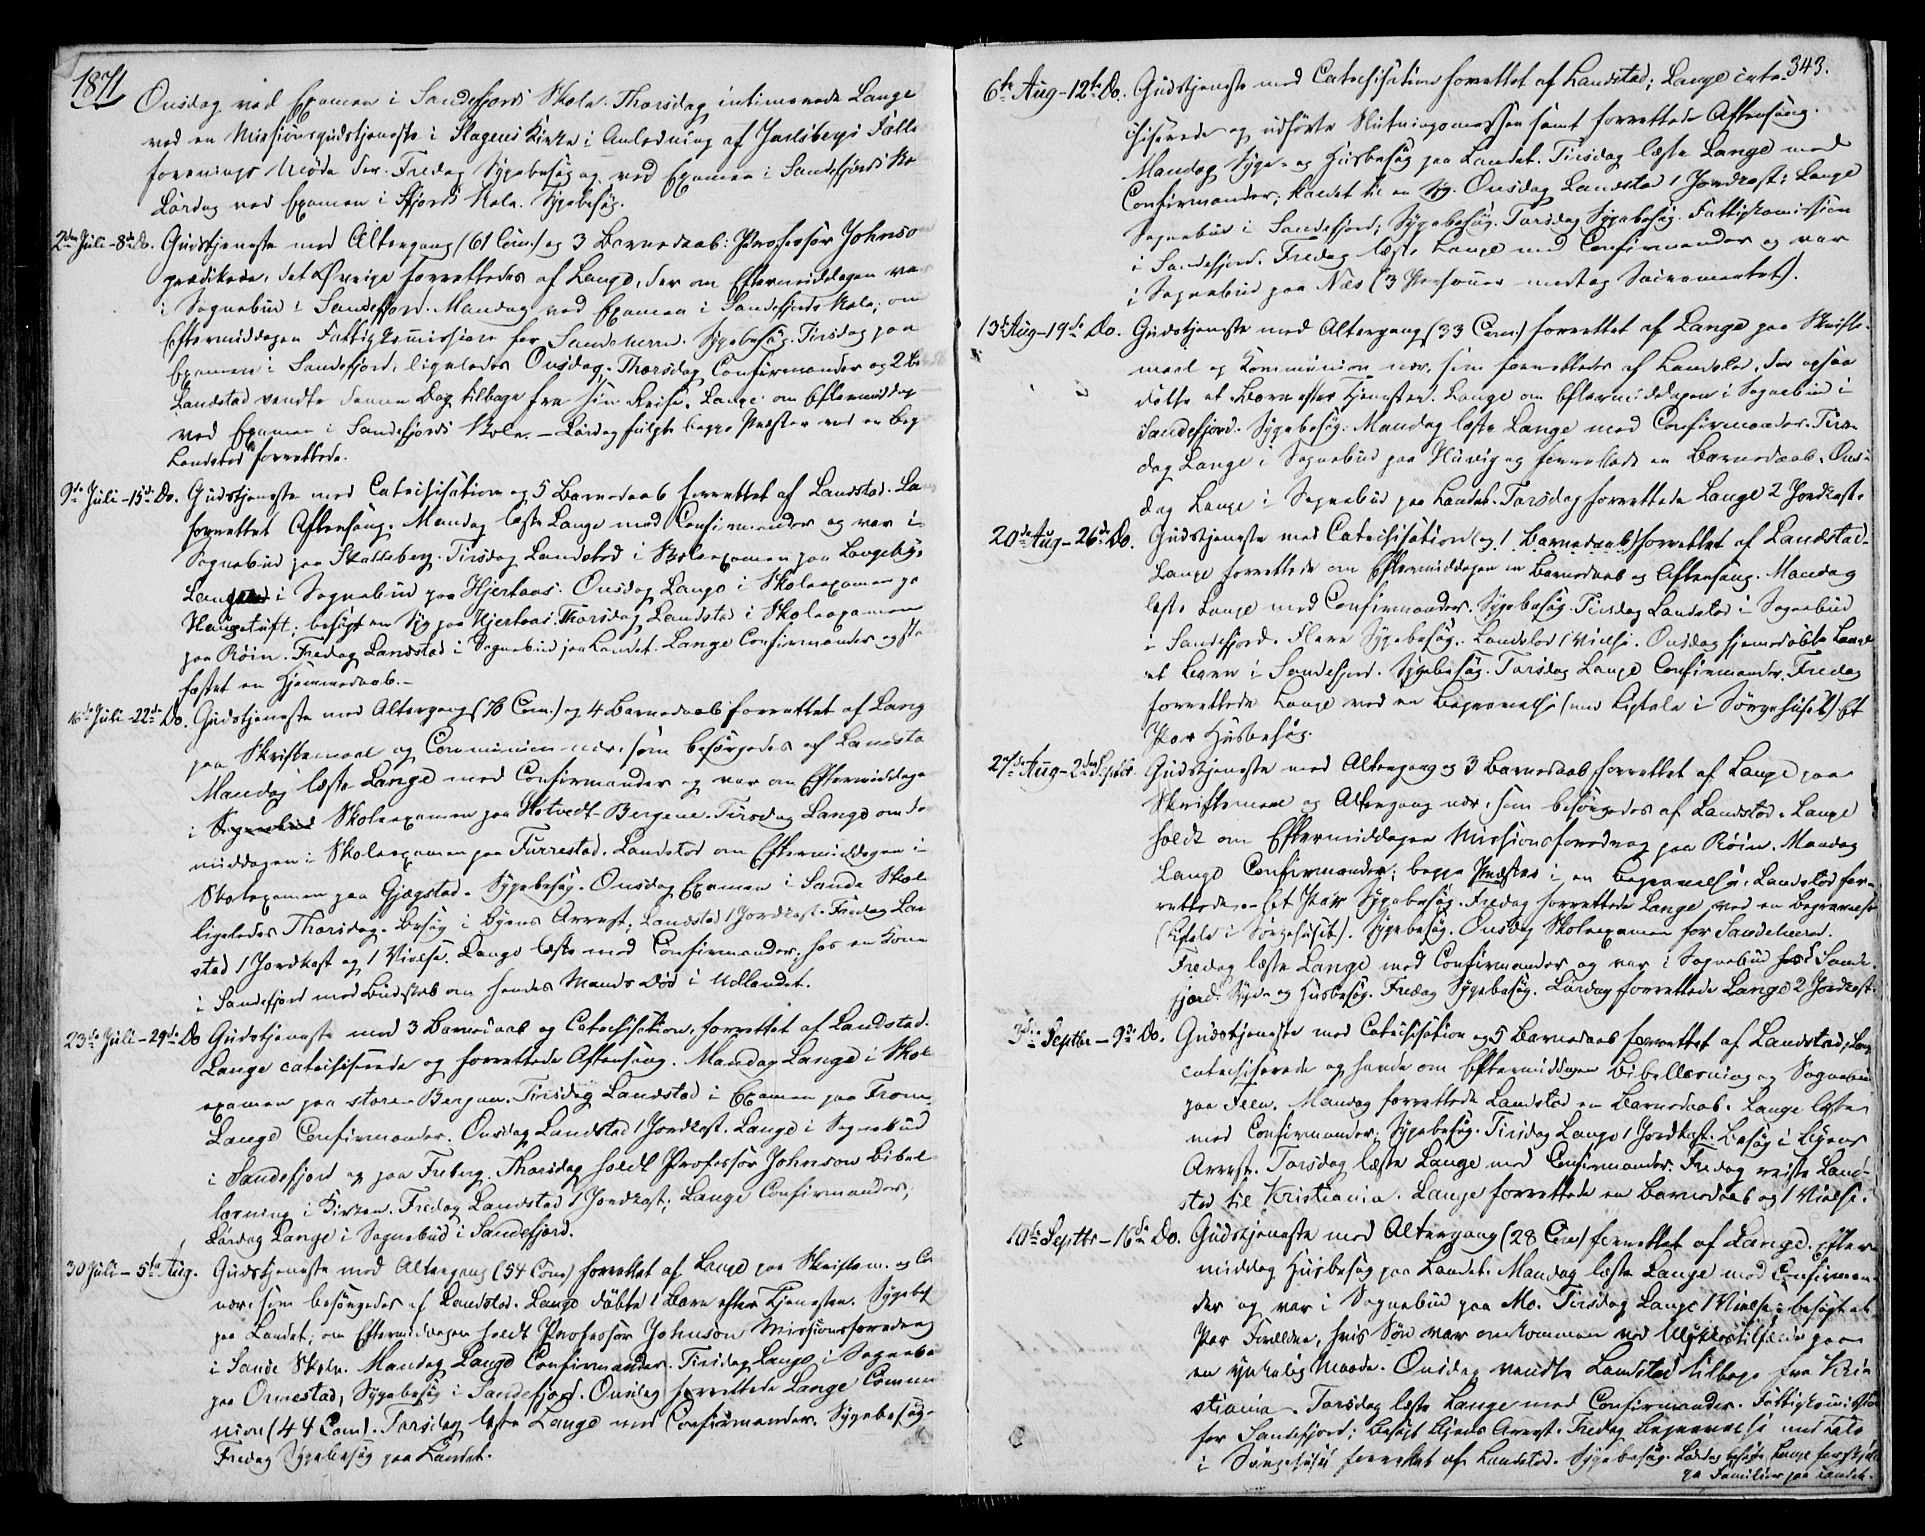 1871
Onsdag ved Examen i Sandefjords Skole. Thorsdag intimerede Lange
ved en Missionsgudstjeneste i Slagens Kirke i Anledning af Jarlsbergs Fælles
forenings Møde der. Fredag Sygebesøg og ved Examen i Sandefjords Sko
Lørdag ved Examen i Sfjords Skole. Sygebesøg.
2den Juli - 8de Do. Gudstjeneste med Altergang (61 Com.) og 3 Barnedaab: Professor Johnson
prædikede, det Øvrige forrettedes af Lange, der om Eftermiddagen var
i Sognebud i Sandefjord. Mandag ved Examen i Sandefjords Skole; om
Eftermiddagen Fattigkommission for Sandeherred. Sygebesøg. Tirsdag paa
Examen i Sandefjord, ligeledes Onsdag. Thorsdag Confirmander og 2
Landstad vendte denne Dag tilbage fra sin Reise. Lange om Eftermiddag
ved Examen i Sandefjords Skole. – Lørdag fulgte begge Præster ved en Beg
Landstad forrettede.
9de Juli - 15de Do. Gudstjeneste med Catechisation og 5 Barnedaab forrettet af Landstad. La
forrettet Aftensang. Mandag læste Lange med Confirmander og var i
Sognebud paa Skalleberg. Tirsdag Landstad i Skoleexamen paa Langeby;
Lange i Sognebud paa Hjertaas. Onsdag Lange i Skoleexamen pa
Haugetuft; besøgt en Syg paa Hjertaas. Thorsdag Landstad i Skoleexamen
paa Røin. Fredag Landstad i Sognebud paa Landet. Lange Confirmander og sta
fæstet en Hjemmedaab. –
16de Juli - 22de Do. Gudstjeneste med Altergang (78 Com.) og 4 Barnedaab forrettet af Lang
paa Skriftemaal og Communion nær, som besørgedes af Landsta
Mandag læste Lange med Confirmander og var om Eftermiddage
i Sognebud Skoleexamen paa Hotvedt-Bergene. Tirsdag Lange om Fo
middagen i Skoleexamen paa Furrestad. Landstad om Eftermiddagen i
Skoleexamen paa Gjøgstad. Sygebesøg. Onsdag Examen i Sande Skole
ligeledes Thorsdag. Besøg i Byens Arrest; Landstad 1 Jordkast. Fredag Lan
stad 1 Jordkast og 1 Vielse. Lange læste med Confirmander; hos en Kone
i Sandefjord med Budskab om hendes Mands Død i Udlandet.
23de Juli - 29de Do Gudstjeneste med 3 Barnedaab og Catechisation, forrettet af Landstad.
Lange catechiserede og forrettede Aftensang. Mandag Lange i Skole
examen paa store Bergan. Tirsdag Landstad i Examen paa Fram
Lange Confirmander. Onsdag Landstad 1 Jordkast. Lange i Sognebud
i Sandefjord og paa Freberg. Thorsdag holdt Professor Johnson Bibel
læsning i Kirken. Fredag Landstad 1 Jordkast; Lange Confirmander;
Lørdag Lange i Sognebud i Sandefjord.
30 Juli - 5te Aug. Gudstjeneste med Altergang (54 Com) forrettet af Lange paa Skriftem. og Co
nær, som besørgedes af Landstad. Lange døbte 1 Barn efter Tjenesten. Sygebes
paa Landet; om Eftermiddagen holdt Professor Johnson Missionsforedrag
i Sande Skole. Mandag Lange Confirmander. Tirsdag Lange i Sognebu
paa Ormestad, Sygebesøg i Sandefjord. Onsdag forrettede Lange Commu
nion (44 Com). Torsdag læste Lange med Confirmander. Sygebesøg.
Fredag Sygebesøg paa Landet.
343.
6te Aug - 12te Do. Gudstjeneste med Catechisation forrettet af Landstad; Lange cate
chiserede og udførte Slutningsmessen samt forrettede Aftensang.
Mandag Syge- og Husbesøg paa Landet. Tirsdag læste Lange med
Confirmander; kaldet til en Syg. Onsdag Landstad 1 Jordkast; Lange
Sognebud i Sandefjord; Sygebesøg. Torsdag Sygebesøg. Fattigkomission
i Sandefjord. Fredag læste Lange med Confirmander og var
i Sognebud paa Næs (3 Personer modtog Sacramentet).
13de Aug - 19de Do. Gudstjeneste med Altergang (33 Com.) forrettet af Lange paa Skrifte-
maal og Kommunion nær, som forrettedes af Landstad, der ogsaa
døbte et Barn efter Tjenesten. Lange om Eftermiddagen i Sognebud i
Sandefjord. Sygebesøg. Mandag læste Lange med Confirmander. Tirs-
dag Lange i Sognebud paa Huvig og forrettede en Barnedaab. Ons-
dag Lange i Sognebud paa Landet. Torsdag forrettede Lange 2 Jordkast.
20de Aug - 26de Do. Gudstjeneste med Catechisation (og 1 Barnedaab) forrettet af Landstad.
Lange forrettede om Eftermiddagen en Barnedaab og Aftensang. Mandag
læste Lange med Confirmander. Sygebesøg. Tirsdag Landstad i Sognebud
i Sandefjord. Flere Sygebesøg. Landstad 1 Vielse. Onsdag hjemmedøbte Lange
et Barn i Sandefjord. Sygebesøg. Torsdag Lange Confirmander. Fredag
forrettede Lange ved en Begravelse (med Ligtale i Sørgehuset). Et
Par Husbesøg.
27de Aug - 2den Septbr. Gudstjeneste med Altergang og 3 Barnedaab forrettet af Lange paa
Skriftemaal og Altergang nær, som besørgedes af Landstad. Lange
holdt om Eftermiddagen Missionsforedrag paa Røin. Mandag
Lange Confirmander; begge Præster i en Begravelse, Landstad for-
rettede. Et Par Sygebesøg. Fredag forrettede Lange ved en Begravelse
(Ligtale i Sørgehuset). Sygebesøg. Onsdag Skoleexamen for Sandeherred.
Fredag læste Lange med Confirmander og var i Sognebud i Sande-
fjord. Syge- og Husbesøg. Fredag Sygebesøg. Lørdag forrettede Lange 2 Jordkast.
3die Septbr - 9de Do. Gudstjeneste med Catechisation og 5 Barnedaab forrettet af Landstad; Lange
catechiserede og havde om Eftermiddagen Bibellæsning og Sognebud
paa Feen. Mandag forrettede Landstad en Barnedaab. Lange læste
med Confirmander; Sygebesøg. Tirsdag Lange 1 Jordkast. Besøg i Byens
Arrest. Torsdag læste Lange med Confirmander. Fredag reiste Land-
stad til Kristiania. Lange forrettede en Barnedaab og 1 Vielse.
10de Septbr - 16de Do. Gudstjeneste med Altergang (28 Com) forrettet af Lange. Efter-
middag Husbesøg paa Landet. Mandag læste Lange med Confirman-
der og var i Sognebud paa Mo. Tirsdag Lange 1 Vielse; besøgt et
Par Forældre, hvis Søn var omkommen ved Ulykkestilfælde paa
en ynkelig Maade. Onsdag vendte Landstad tilbage fra Kris
tiania. Torsdag læste Lange med Confirmander. Fattigkomission
for Sandefjord; besøgt Byens Arrest. Fredag Begravelse med Tale
i Sørgehuset forrettet af Landstad. Sygebesøg. Lørdag besøgte Lange forskjelli
ge Familier paa Landet.